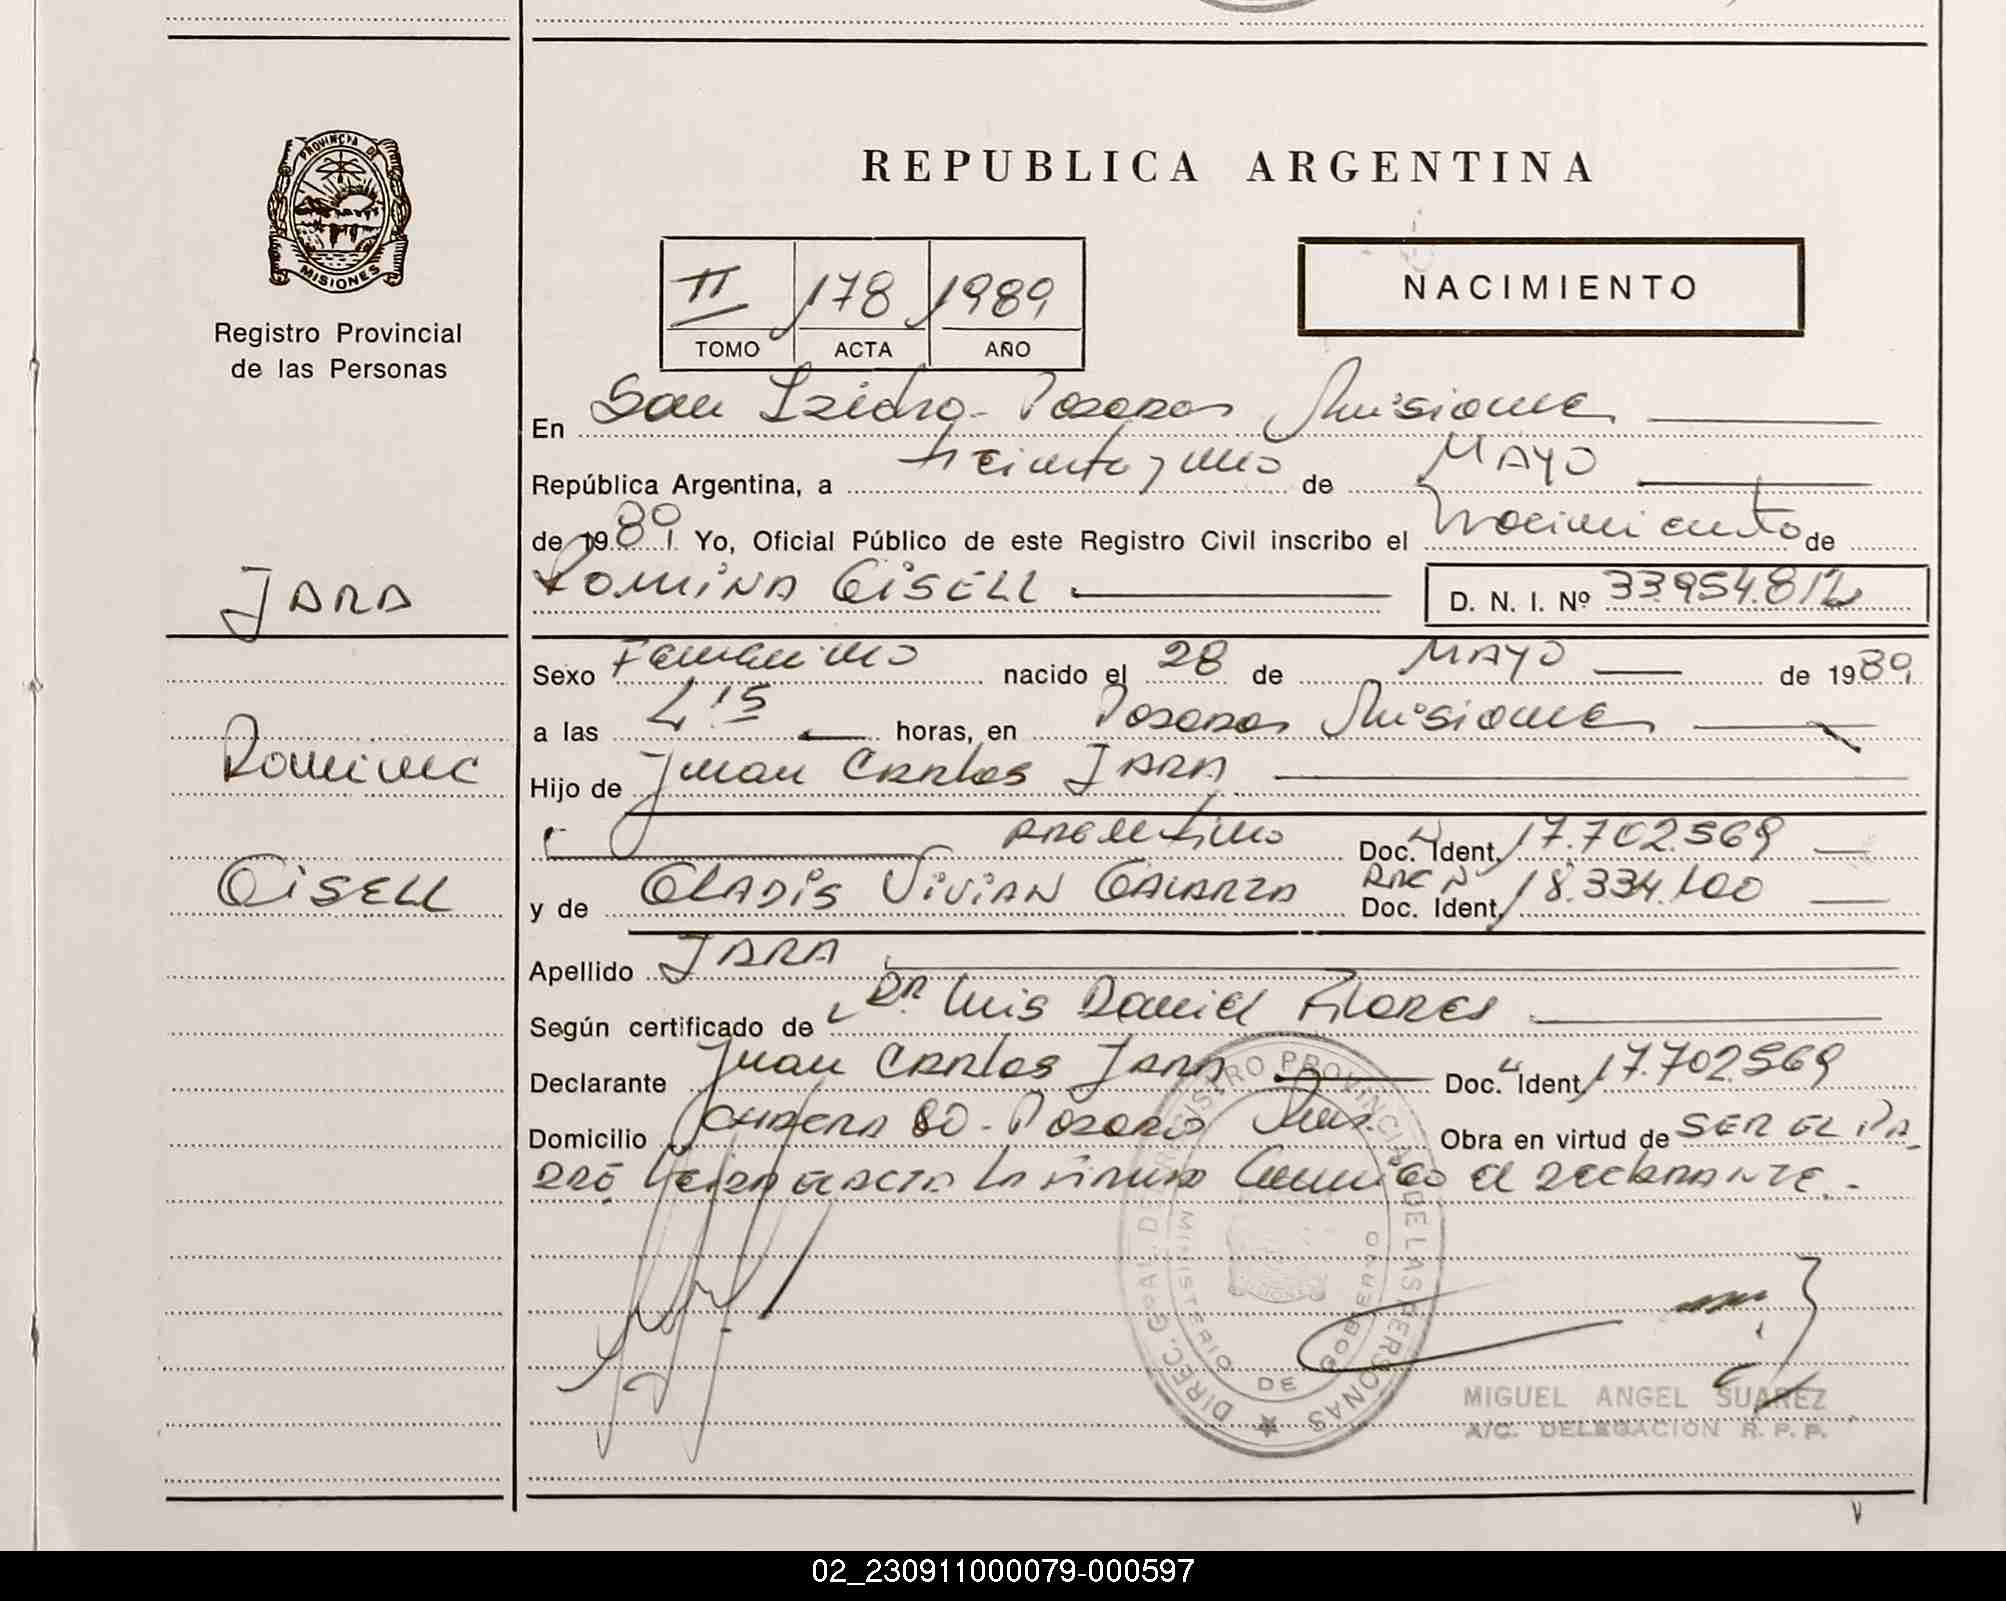 PROVINCIA DE
MISIONES
Registro Provincial
de las Personas
JARA
Romina
GISELL
REPUBLICA ARGENTINA
II 178 1989
TOMO ACTA AÑO
NACIMIENTO
En San Izidro - Posadas Misiones
República Argentina, a treinta y uno de MAYO
de 1989 Yo, Oficial Público de este Registro Civil inscribo el Nacimiento de
ROMINA GISELL D. N. I. Nº 33954.812
Sexo Femenino nacido el 28 de MAYO de 1989
a las 4,15 horas, en Posadas Misiones
Hijo de Juan Carlos JARA
Argentino Doc. Ident. 17.702.569
y de GLADIS VIVIAN GALARZA Arg N Doc. Ident. 18.334.100
Apellido JARA
Según certificado de Dr. Luis Daniel Flores
Declarante Juan Carlos Jara Doc. Ident. 17.702.569
Domicilio 80 - Posadas Mnes. Obra en virtud de SER EL PA-
DRE Leida el acta la firma conmigo el declarante.-
DIREC. GRAL. DEL REGISTRO PROVINCIAL DE LAS PERSONAS
MINISTERIO DE GOBIERNO
MIGUEL ANGEL SUAREZ
A/C. DELEGACION R. P. P.
02_230911000079-000597